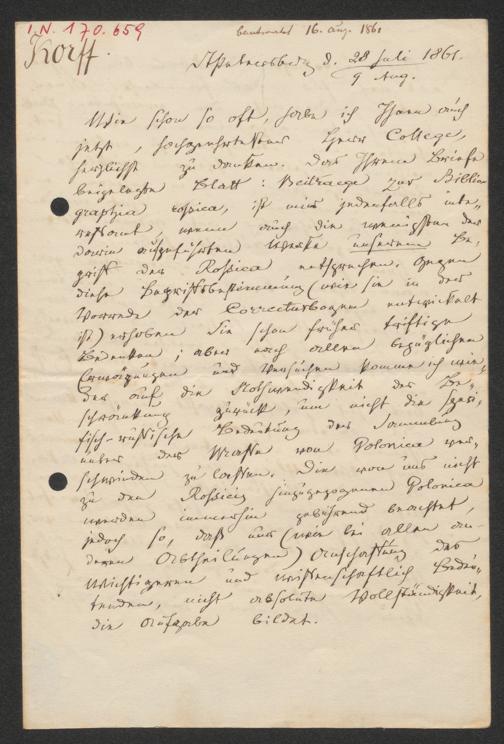 I.N. 170.659
beantwortet 16. Aug. 1861
Korff.
St Petersburg d. 28 Juli 1861.
9 Aug.
Wie schon so oft, habe ich Ihnen auch
jetzt, hochgeehrtester Herr College,
herzlichst zu danken. Das Ihrem Briefe
beigelegte Blatt: Beitraege zur Biblio-
graphia rossica, ist mir jedenfalls inte-
ressant, wenn auch die wenigsten der
darin aufgeführten Werke unserem Be-
griff der Rossica entsprechen. Gegen
diese Begriffsbestimmung (wie sie in der
Vorrede der Correcturbogen entwickelt
ist) erhoben Sie schon früher triftige
Bedenken; aber nach allen bezüglichen
Erwägungen und Versuchen komme ich wie-
der auf die Nothwendigkeit der Be-
schränkung zurück, um nicht die speci-
fisch-russische Bedeutung der Sammlung
unter der Masse von Polonica ver-
schwinden zu lassen. Die von uns nicht
zu den Rossicis hinzugezogenen Polonica
werden immerhin gebührend beachtet,
jedoch so, daß nur (wie bei allen an-
deren Abtheilungen) Anschaffung des
Wichtigeren und wissenschaftlich Bedeu-
tenden, nicht absolute Vollständigkeit,
die Aufgabe bildet.